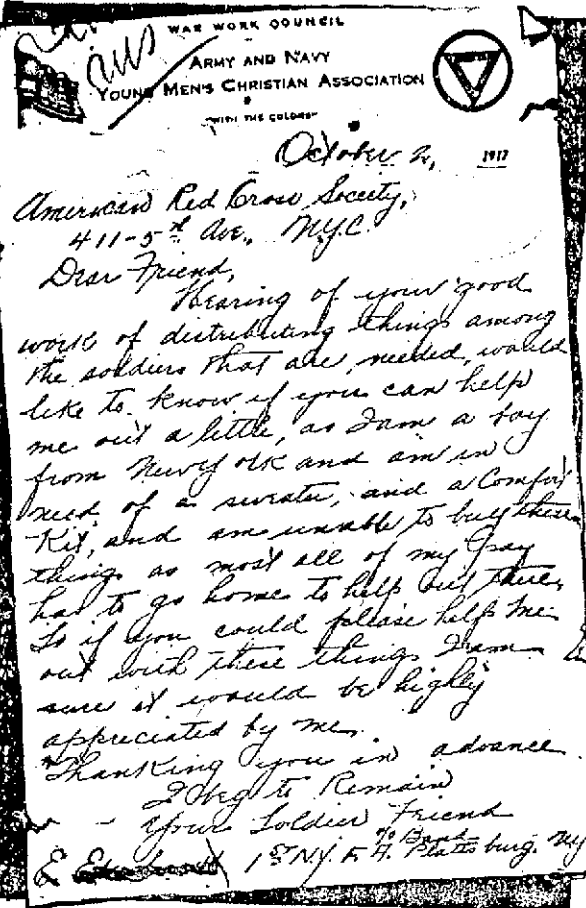 WAR WORK COUNCIL
ARMY AND NAVY
YOUNG MEN'S CHRISTIAN ASSOCIATION
"WITH THE COLORS"
October 2, 1917
American Red Cross Society,
411-5th Ave., N.Y.C.
Dear Friend,
Hearing of your good
work of distributing things among
the soldiers that are, needed, would
like to know if you can help
me out a little, as I am a boy
from New York and am in
need of a sweater, and a Comfort
Kit, and am unable to buy these
things as most all of my Pay
has to go home to help out there,
So if you could please help me
out with these things I am
sure it would be highly
appreciated by me.
Thanking you in advance
I beg to Remain
Your Soldier Friend
c/o Band
1st N.Y. F.A. Plattsburg. N.Y.